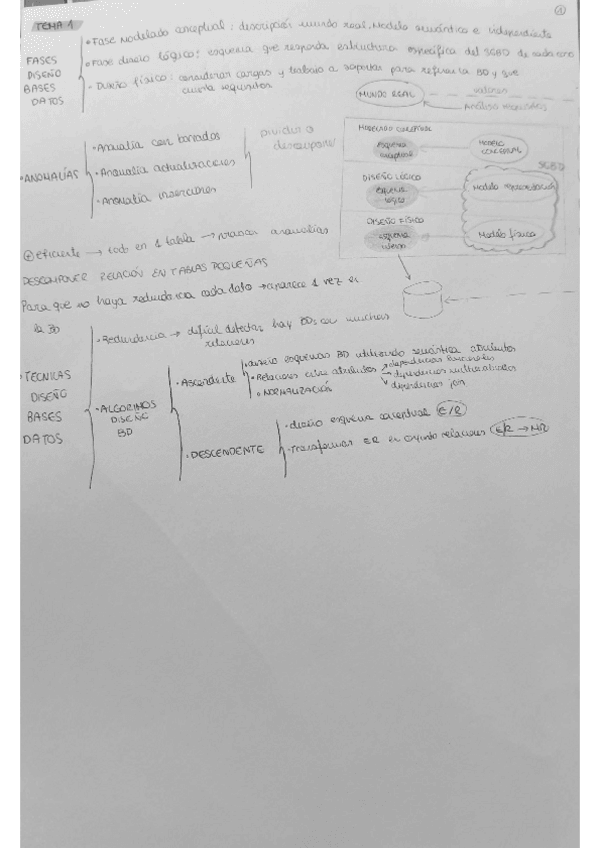 1
TEMA 1
FASES DISEÑO BASES DATOS
• Fase Modelado conceptual: descripción mundo real, Modelo semántico e independiente
• Fase diseño lógico: esquema que responda estructura específica del SGBD de cada
• Diseño físico: considerar cargas y trabajo a soportar para refinar la BD y que
cumpla requisitos
MUNDO REAL
Análisis requisitos
• ANOMALÍAS
• Anomalía con borrados
• Anomalía actualizaciones
• Anomalía inserciones
dividir o
descomponer
MODELADO CONCEPTUAL
esquema
conceptual
MODELO
CONCEPTUAL
SGBD
DISEÑO LÓGICO
esquema
lógico
Modelo representación
DISEÑO FÍSICO
esquema
interno
Modelo físico
eficiente → todo en 1 tabla → anomalías
DESCOMPONER RELACIÓN EN TABLAS PEQUEÑAS
Para que no haya redundancia cada dato → aparece 1 vez en
la BD
• TÉCNICAS
DISEÑO
BASES
DATOS
• Redundancia → difícil detectar, hay BDs con muchas
relaciones
• ALGORITMOS
DISEÑO
BD
• Ascendente
• diseño esquemas BD utilizando semántica atributos
• Relaciones entre atributos
dependencias funcionales
dependencias multivaluadas
dependencias join
• NORMALIZACIÓN
• DESCENDENTE
• diseño esquema conceptual E/R
• Transformar ER en conjunto relaciones E/R → MR